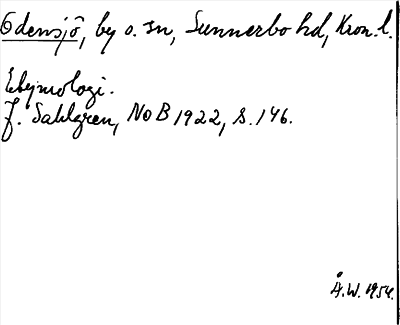 Odensjö, by o. sn, Sunnerbo hd, Kron. l.
Etymologi.
J. Sahlgren, NoB 1922, s. 146.
Å.W. 1954.